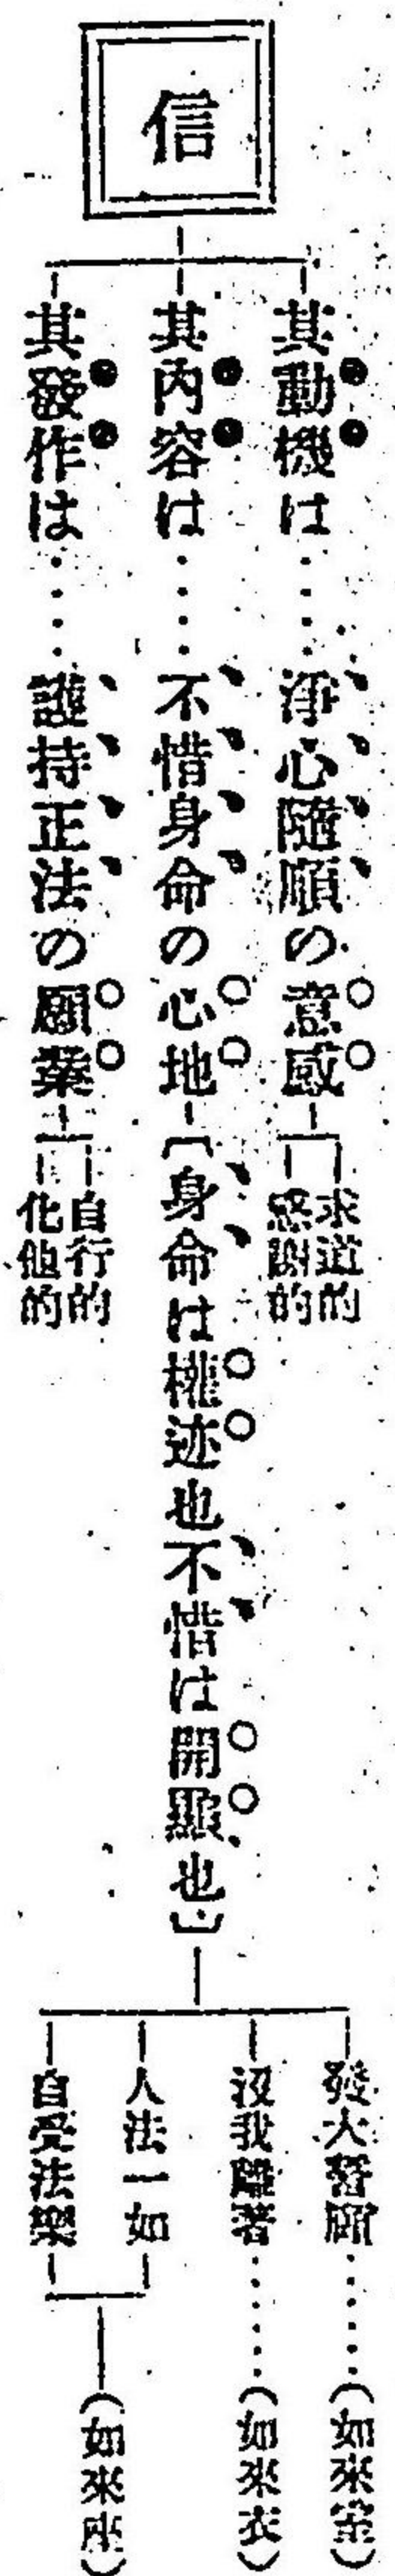 信
其動機は……淨心隨順の意感
求道的
感謝的
其内容は……不惜身命の心地
〔身命は權迹也不惜は開顯也〕
發大誓願……(如來室)
沒我離著……(如來衣)
人法一如
自受法樂
(如來座)
其發作は……護持正法の願業
自行的
化他的